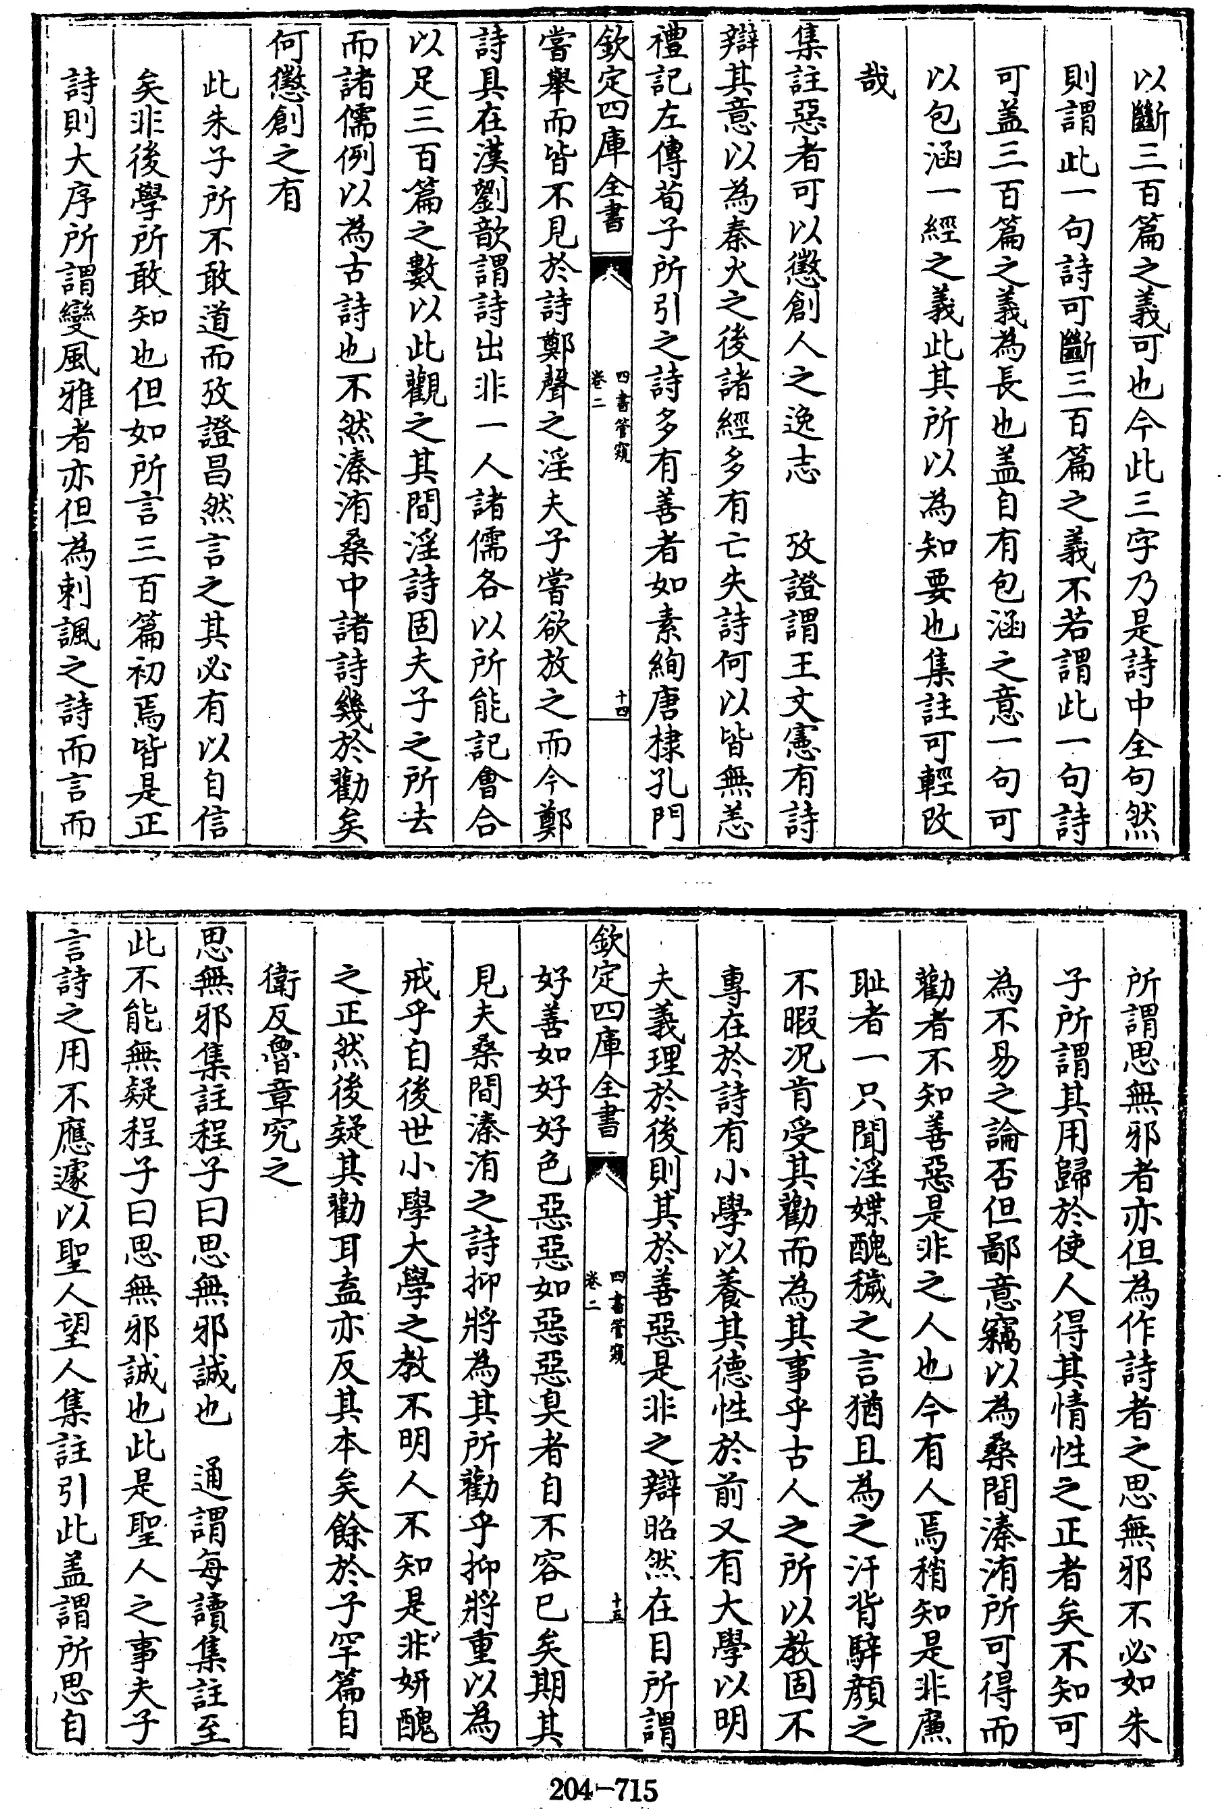 以斷三百篇之義可也今此三字乃是詩中全句然
則謂此一句詩可斷三百篇之義不若謂此一句詩
可盖三百篇之義為長也盖自有包涵之意一句可
以包涵一經之義此其所以為知要也集註可輕改
哉
集註惡者可以懲創人之逸志　攷證謂王文憲有詩
辯其意以為秦火之後諸經多有亡失詩何以皆無恙
禮記左傳荀子所引之詩多有善者如素絢唐棣孔門
欽定四庫全書
四書管窺
卷二
十四
嘗舉而皆不見於詩鄭聲之淫夫子嘗欲放之而今鄭
詩具在漢劉歆謂詩出非一人諸儒各以所能記會合
以足三百篇之數以此觀之其間淫詩固夫子之所去
而諸儒例以為古詩也不然溱洧桑中諸詩幾於勸矣
何懲創之有
此朱子所不敢道而攷證昌然言之其必有以自信
矣非後學所敢知也但如所言三百篇初焉皆是正
詩則大序所謂變風雅者亦但為刺諷之詩而言而
所謂思無邪者亦但為作詩者之思無邪不必如朱
子所謂其用歸於使人得其情性之正者矣不知可
為不易之論否但鄙意竊以為桑間溱洧所可得而
勸者不知善惡是非之人也今有人焉稍知是非廉
耻者一只聞淫媟醜穢之言猶且為之汗背騂顔之
不暇况肯受其勸而為其事乎古人之所以教固不
專在於詩有小學以養其德性於前又有大學以明
夫義理於後則其於善惡是非之辯昭然在目所謂
欽定四庫全書
四書管窺
卷二
十五
好善如好好色惡惡如惡惡臭者自不容已矣期其
見夫桑間溱洧之詩抑將為其所勸乎抑將重以為
戒乎自後世小學大學之教不明人不知是非妍醜
之正然後疑其勸耳盍亦反其本矣餘於子罕篇自
衛反魯章究之
思無邪集註程子曰思無邪誠也　通謂每讀集註至
此不能無疑程子曰思無邪誠也此是聖人之事夫子
言詩之用不應遽以聖人望人集註引此盖謂所思自
204-715